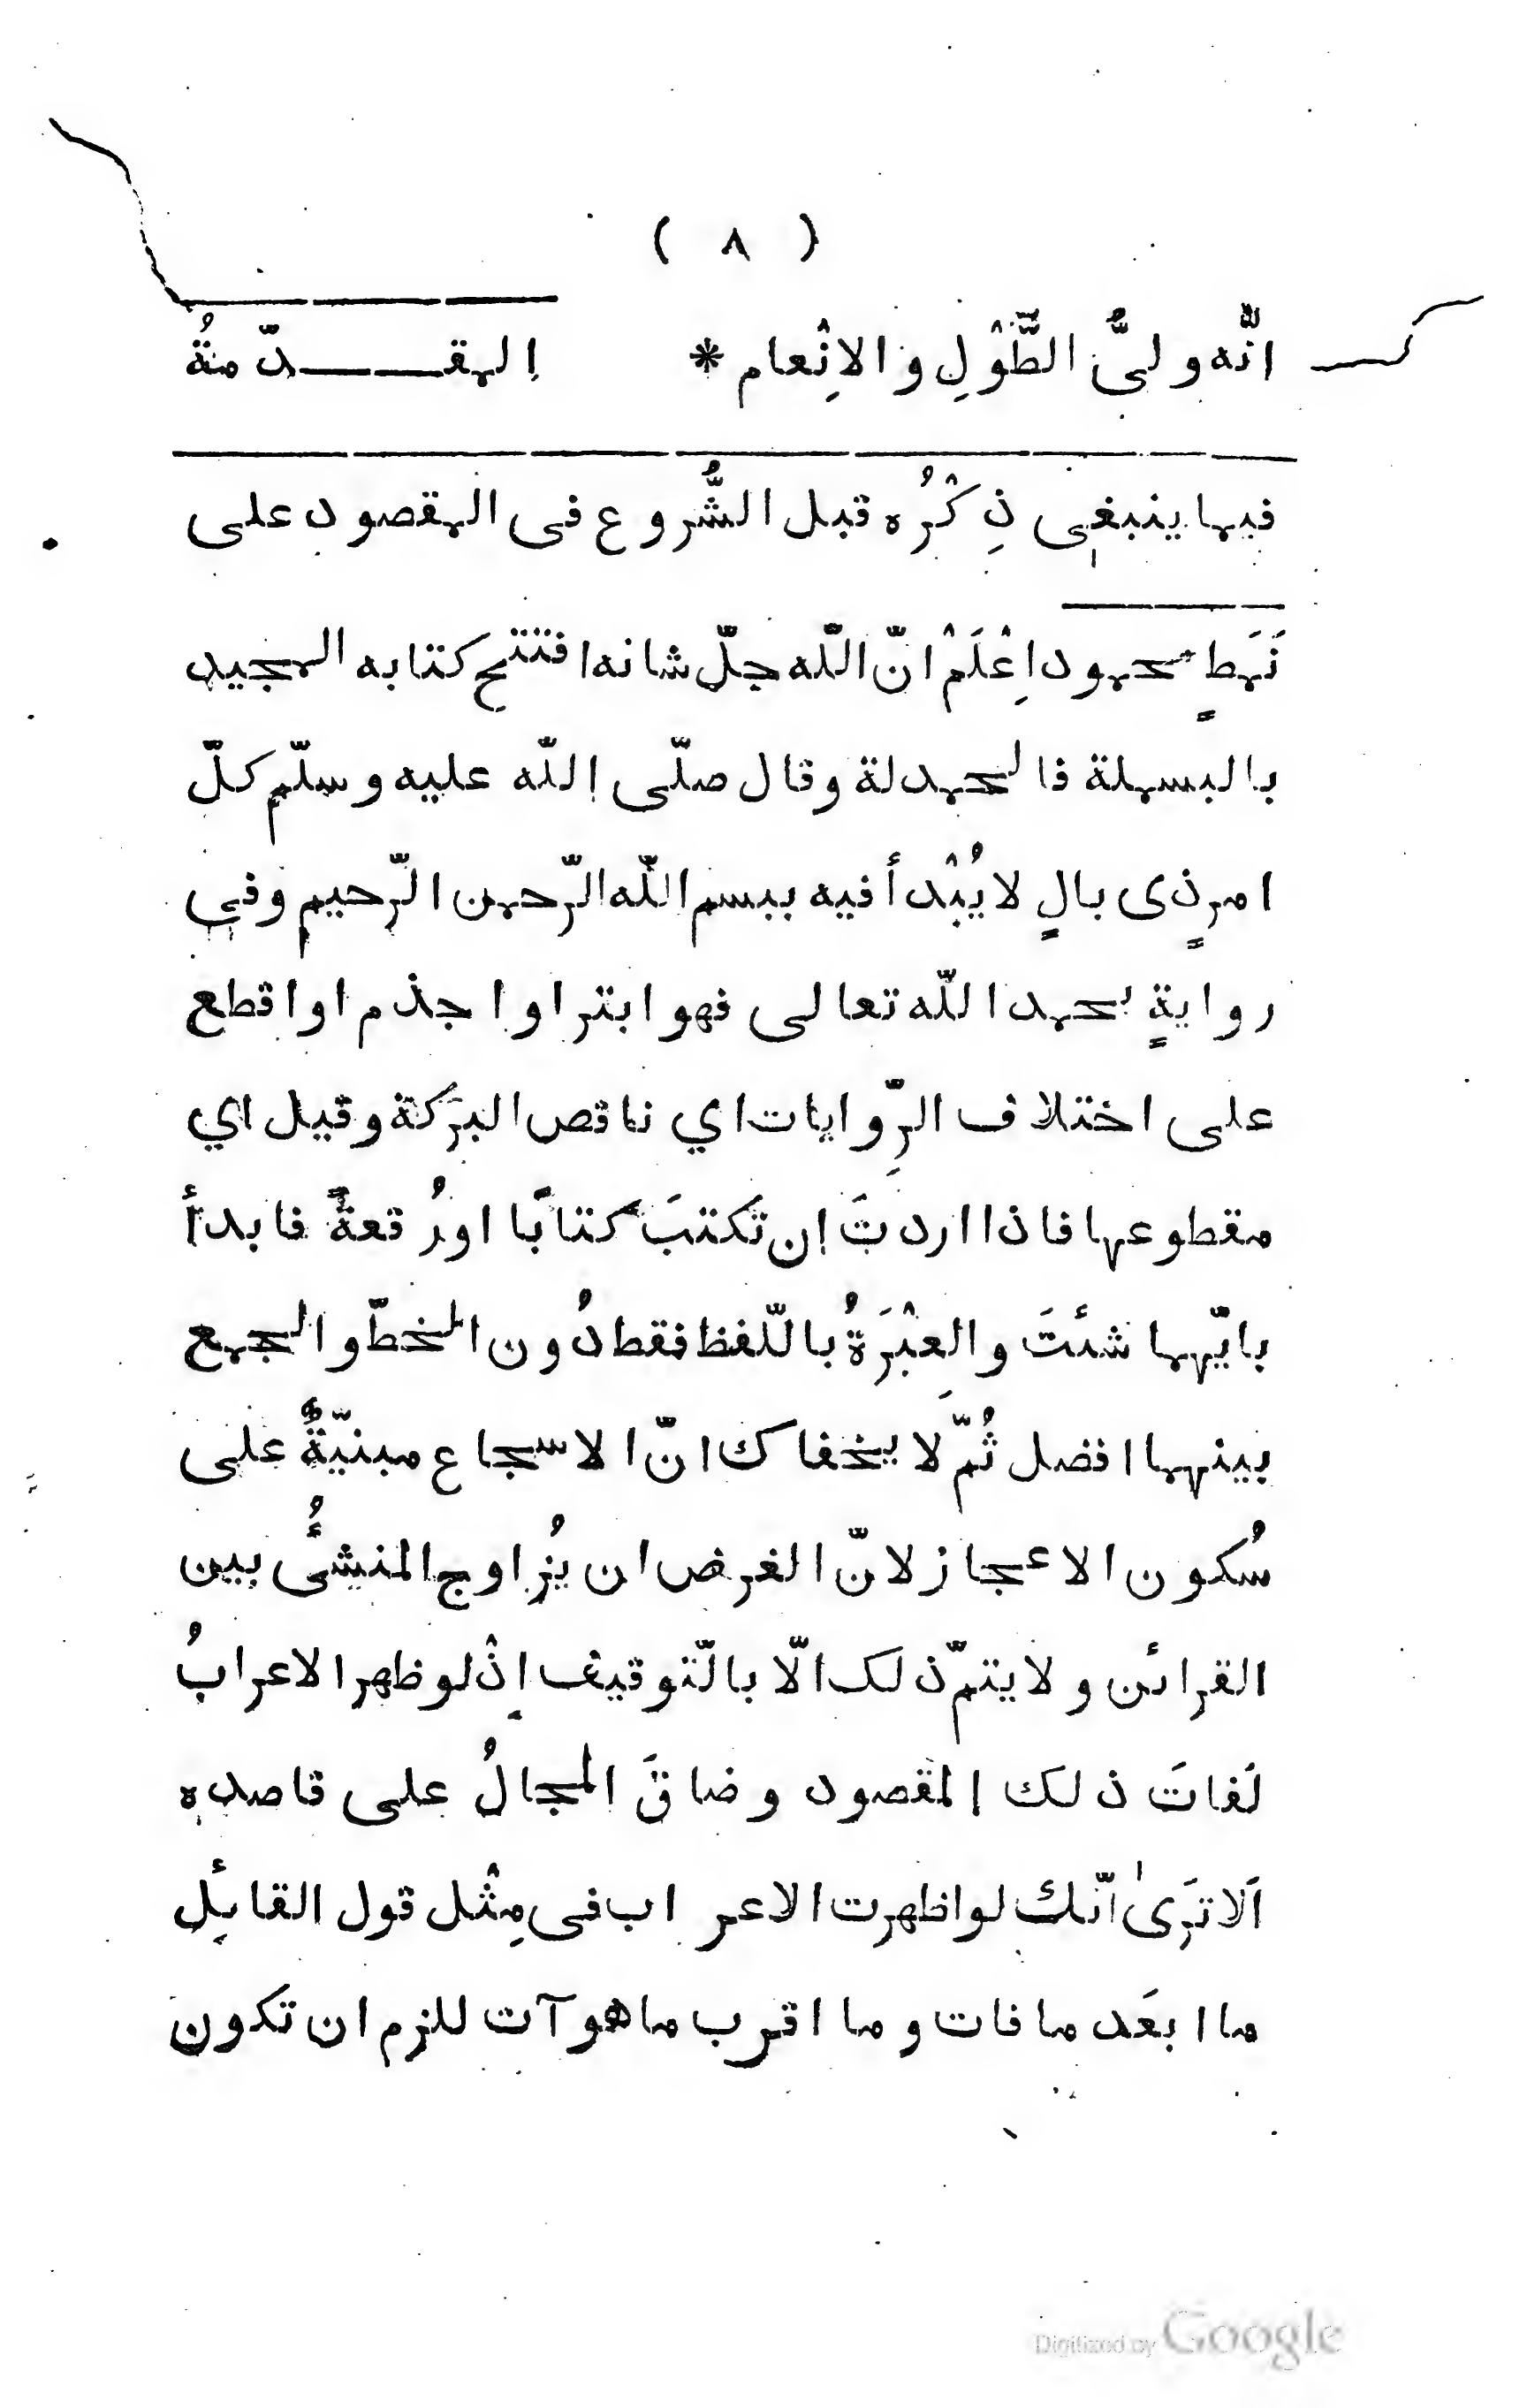 ( ٨ )
انّه ولىُّ الطَّوْلِ و الاِنْعام * المقـــدّمةُ
فيما ينبغى ذِكْرُه قبل الشُّروع فى المقصود على
نَمَطٍ محمود اِعْلَمْ انّ اللّه جلّ شانه افتتح كتابه المجيد
بالبسملة فالحمدلة وقال صلّى اللّه عليه وسلّم كلّ
امرٍ ذى بالٍ لا يُبْدأ فيه ببسم اللّه الرّحمن الرّحيم وفي
روايةٍ بحمد اللّه تعالى فهو ابتر او اجذم او اقطع
على اختلاف الرِّوايات اي ناقص البرَكة وقيل اي
مقطوعها فاذا اردتَ ان تكتبَ كتابًا او رُقعةً فابدأ
بايّهما شئتَ والعِبْرَةُ باللّفظ فقط دُون الخطّ والجمع
بينهما افضل ثُمّ لا يخفاك انّ الاسجاع مبنيّةٌ على
سُكون الاعجاز لانّ الغرض ان يُزاوج المنشئُ بين
القرائن ولا يتمّ ذلك الّا بالتّوقيف اِذْ لو ظهر الاعرابُ
لَفاتَ ذلك المقصود وضاقَ المجالُ على قاصده
اَلا تَرَىٰ انّك لو اظهرت الاعراب فى مِثْل قول القائِل
ما ابعَد ما فات وما اقرب ما هو آت للزم ان تكون
Digitized by Google